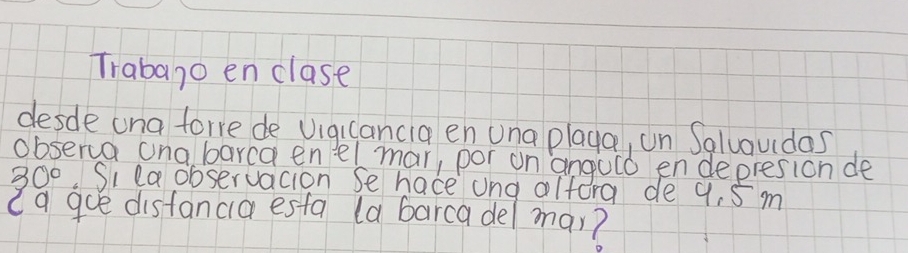 Trabajo en clase
desde una torre de vigicancia en una playa, un Salvavidas
observa una barca en el mar, por un angulo en depresion de
30°. Si la observacion se hace una altura de 4,5 m
¿a que distancia esta la barca del mar?